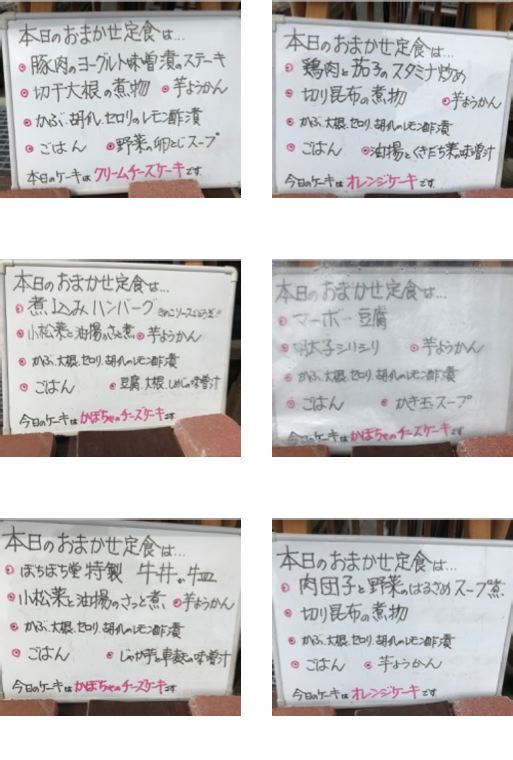 本日のおまかせ定食は...
豚肉のヨーグルト味噌漬のステーキ
切干大根の煮物 芋ようかん
かぶ、胡瓜、セロリのレモン酢漬
ごはん 野菜の卵とじスープ
本日のケーキは クリームチーズケーキです
本日のおまかせ定食は...
鶏肉と茄子のスタミナ炒め
切り昆布の煮物 芋ようかん
かぶ、大根、セロリ、胡瓜のレモン酢漬
ごはん 油揚とくきだち菜の味噌汁
今日のケーキは オレンジケーキです
本日のおまかせ定食は...
煮込みハンバーグ
小松菜と油揚のさっと煮 芋ようかん
かぶ、大根、セロリ、胡瓜のレモン酢漬
ごはん 豆腐、大根、しめじの味噌汁
今日のケーキは かぼちゃのチーズケーキです
本日のおまかせ定食は...
マーボー豆腐
明太子シリシリ 芋ようかん
かぶ、大根、セロリ、胡瓜のレモン酢漬
ごはん かき玉スープ
今日のケーキは かぼちゃのチーズケーキです
本日のおまかせ定食は...
ぼちぼち堂 特製 牛丼の牛皿
小松菜と油揚のさっと煮、芋ようかん
かぶ、大根、セロリ、胡瓜のレモン酢漬
ごはん じゃが芋と車麩の味噌汁
今日のケーキは かぼちゃのチーズケーキです
本日のおまかせ定食は...
肉団子と野菜のはるさめスープ煮
切り昆布の煮物
かぶ、大根、セロリ、胡瓜のレモン酢漬
ごはん 芋ようかん
今日のケーキは オレンジケーキです